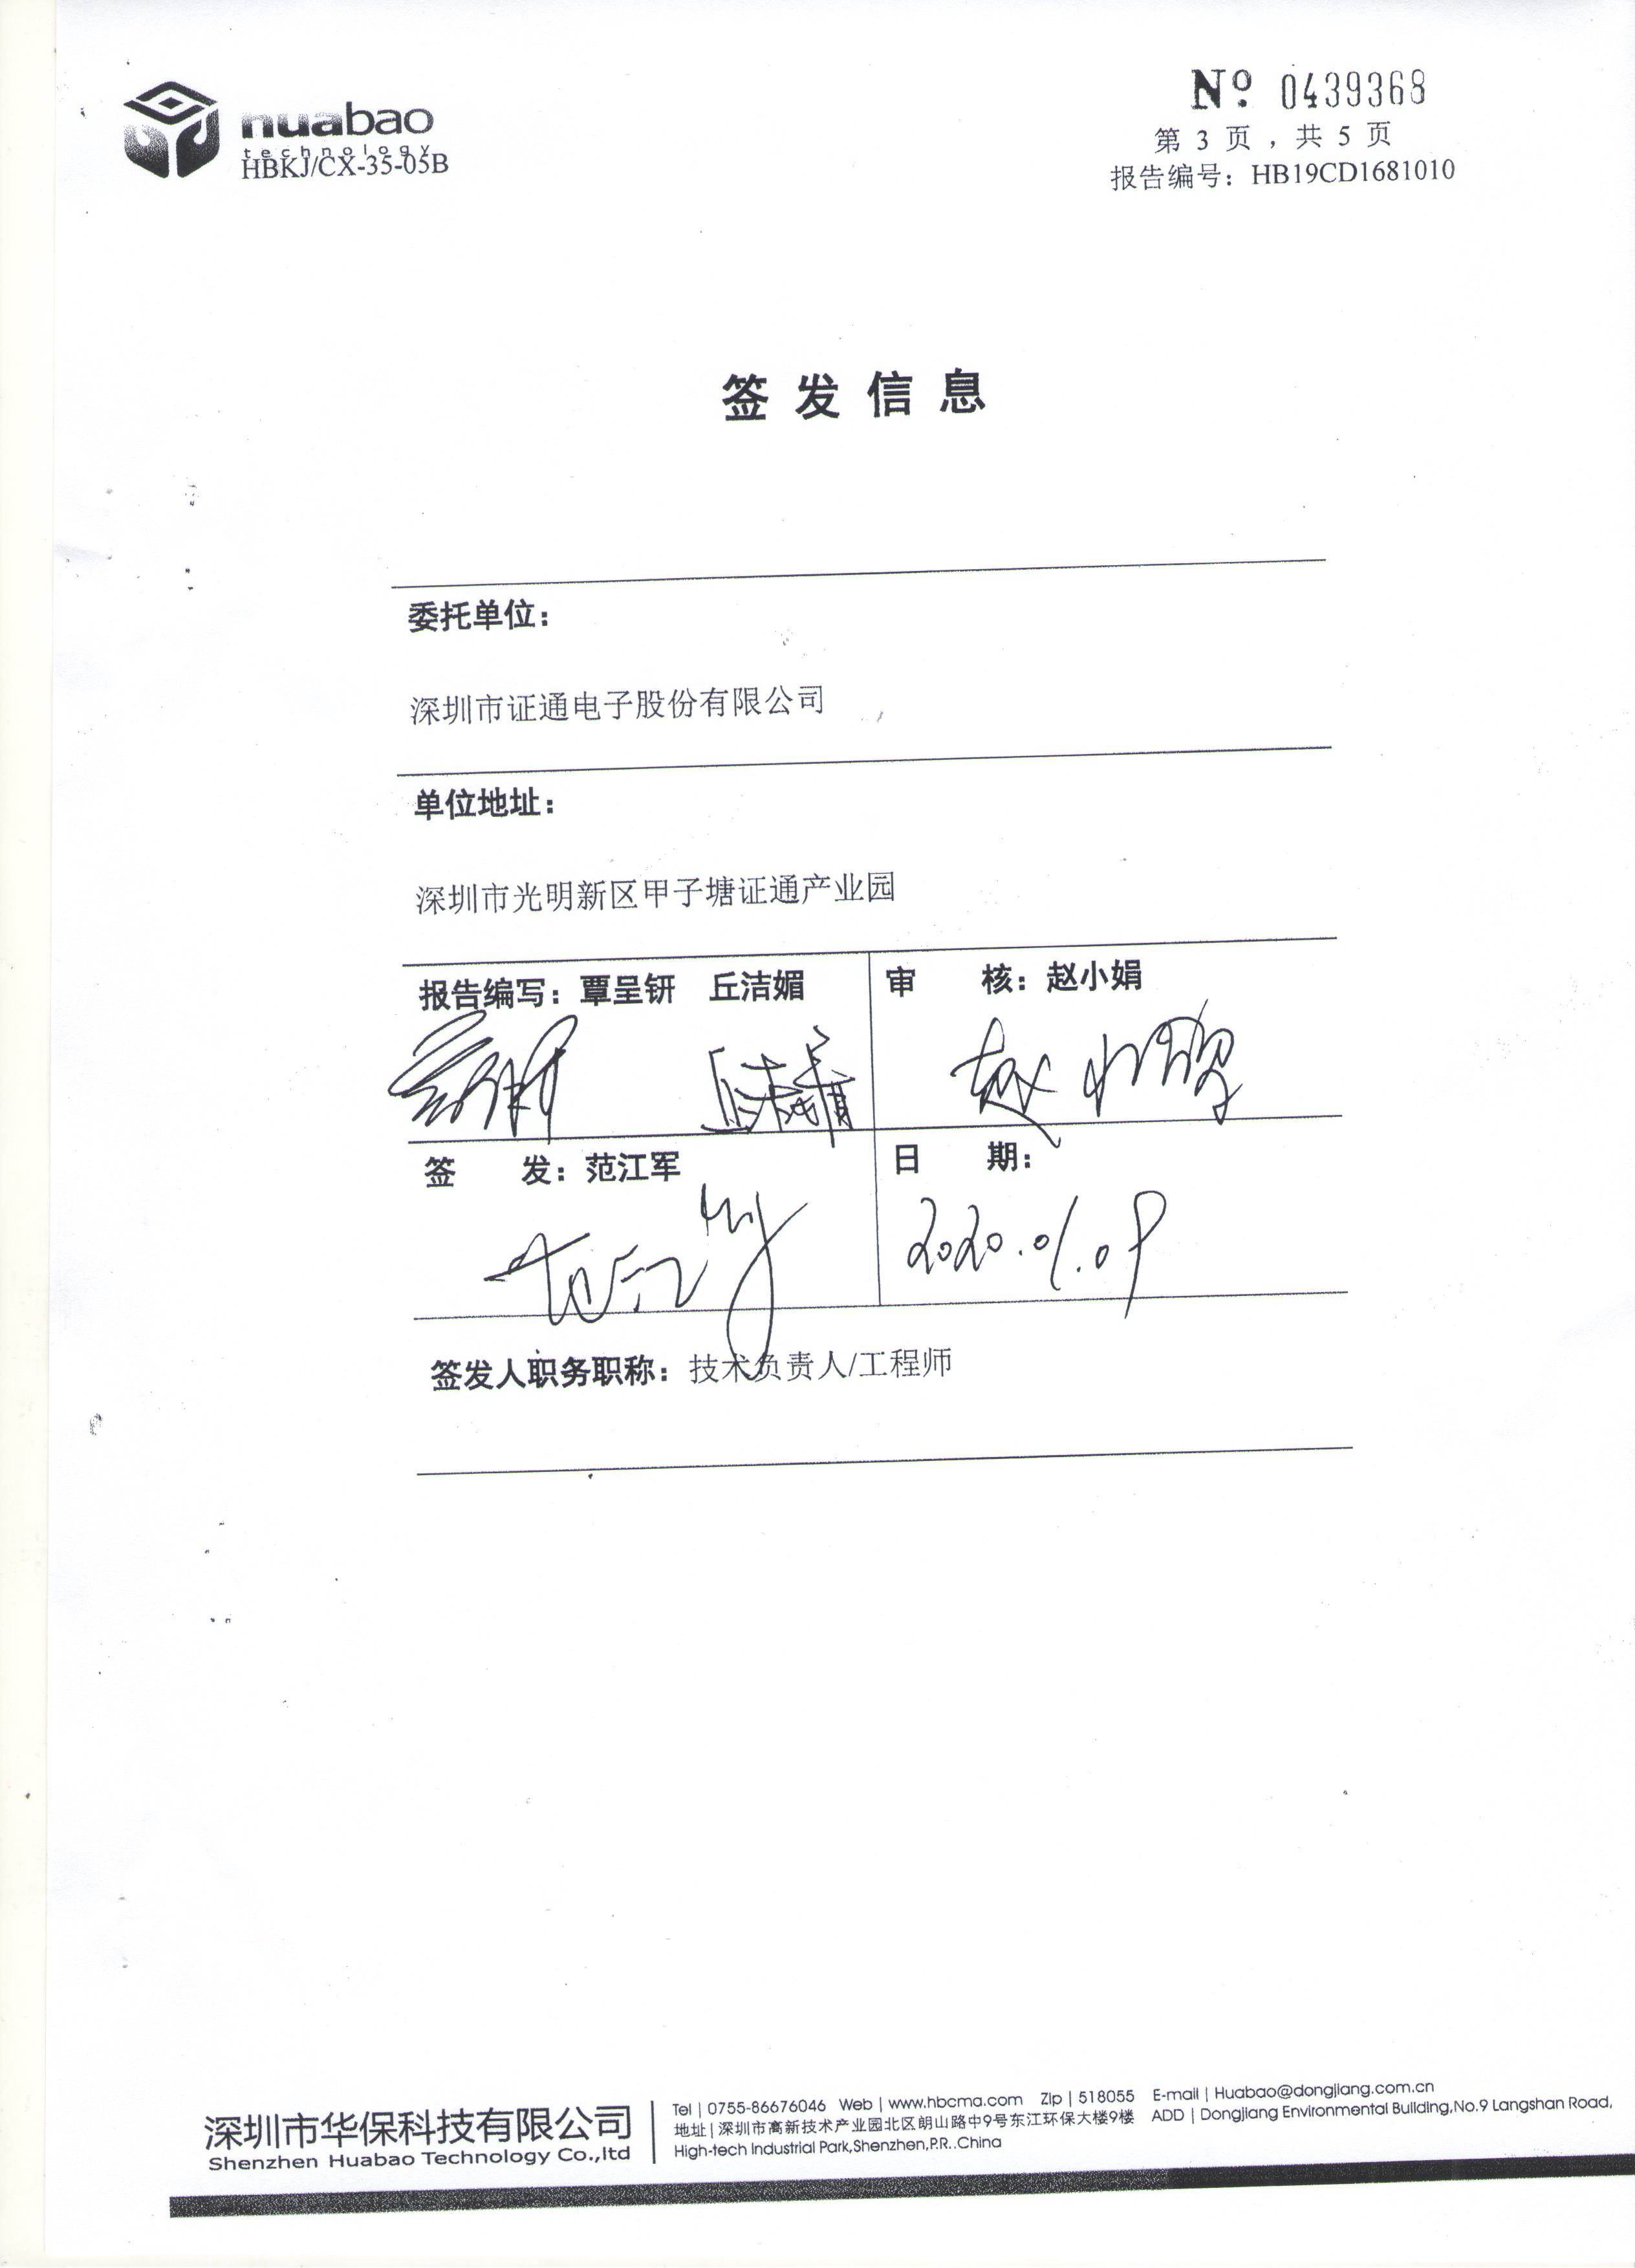 nuabao
technology
HBKJ/CX-35-05B
№ 0439368
第 3 页 , 共 5 页
报告编号: HB19CD1681010
签发信息
委托单位:
深圳市证通电子股份有限公司
单位地址:
深圳市光明新区甲子塘证通产业园
报告编写: 覃呈钘 丘洁媚
审 核: 赵小娟
丘洁媚
赵小娟
签 发: 范江军
日 期:
范江军
2020.01.09
签发人职务职称: 技术负责人/工程师
深圳市华保科技有限公司
Shenzhen Huabao Technology Co.,ltd
Tel | 0755-86676046 Web | www.hbcma.com Zip | 518055 E-mail | Huabao@dongjiang.com.cn
地址 | 深圳市高新技术产业园北区朗山路中9号东江环保大楼9楼 ADD | Dongjiang Environmental Building,No.9 Langshan Road,
High-tech Industrial Park,Shenzhen,P.R..China